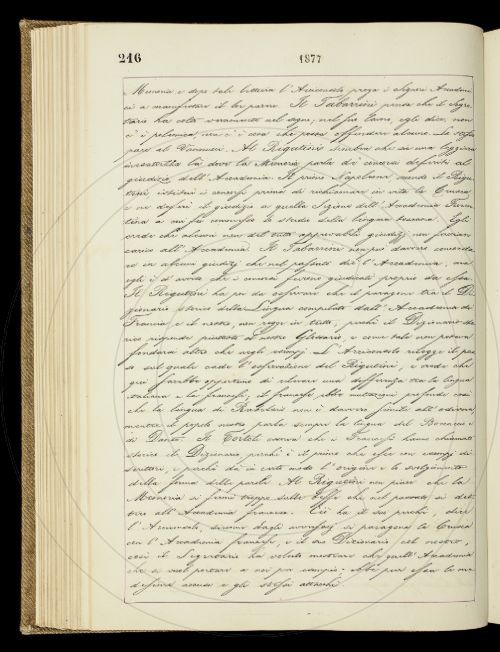 246
1877
Memoria e dopo tale lettura l'Arciconsolo prega i Signori Accademi
ci a manifestare il lor parere. Il Tabarrini pensa che il Segre
tario ha colto veramente nel segno; nel suo lavoro, egli dice, non
c'è polemica, non c'è cosa che possa offendere alcuno. Lo stesso
pare al Vannucci. Al Rigutini sembra che sia una leggiera
inesattezza là, dove la Memoria parla di censori deferiti al
giudizio dell'Accademia. Il primo Napoleone
istituì i censori prima di richiamare in vita la Crusca
e ne deferì il giudizio a quella Sezione dell'Accademia Fioren
tina a cui fu commesso lo studio della lingua toscana. Egli
crede che alcuni non del tutto approvabili giudizi non
carico all'Accademia. Il Tabarrini non può davvero
in alcuni giudizi che nel passato diè l'Accademia, ma
egli è d'avviso che i censori furono giudicati proprio da essa.
Il Rigutini ha poi da osservare che il paragone tra il Di
zionario storico della Lingua compilato dall'Accademia di
Francia e il nostro, non regge in tutto, perchè il Dizionario sto
rico risponde piuttosto al nostro Glossario, e come tale non poteva
fondarsi altro che negli esempj. L'Arciconsolo rilegge il pas
so sul quale cade l'osservazione del Rigutini, e crede che
qui sarebbe opportuno di rilevare una differenza tra la lingua
italiana e la francese; il francese ebbe mutazioni profonde così
che la lingua di Rabelais non è davvero simile all'odierna
mentre il popolo nostro parla sempre la lingua del Boccaccio e
di Dante. Il Tortoli osserva che i Francesi hanno chiamato
storico il Dizionario perchè è il primo che esce con esempj di
scrittori, e perchè dà in certo modo l'origine e lo svolgimento
della forma delle parole. Al Rigutini non piace che la
Memoria si fermi troppo sulle beffe che nel passato si det
tero all'Accademia francese. Ciò ha il suo perchè, dice
l'Arciconsolo, siccome dagli avversarj si paragona la Crusca
con l'Accademia francese, e il suo Dizionario col nostro,
così il Segretario ha voluto mostrare che quell'Accademia
che si vuol portare a noi per esempio, ebbe pur essa le me
desime accuse e gli stessi attacchi.